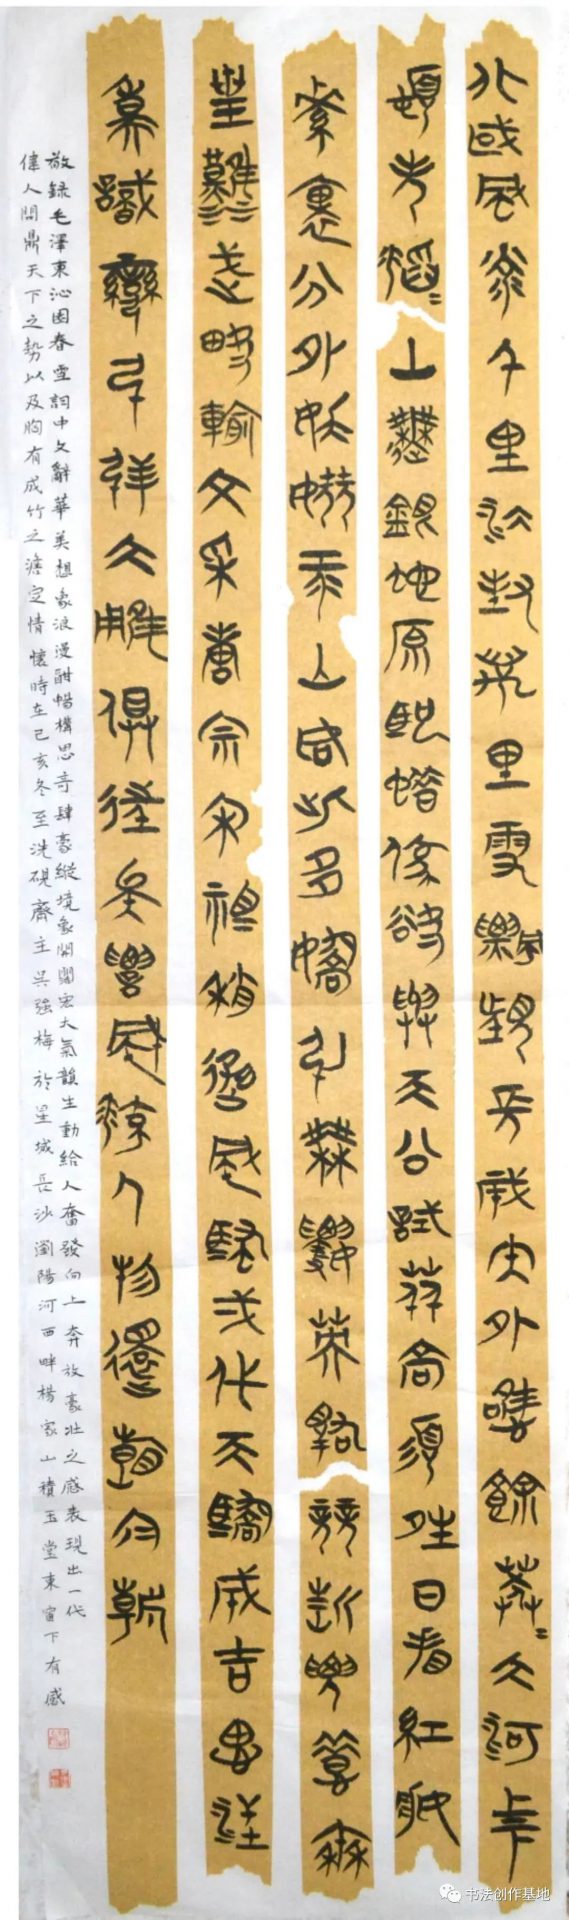 北國風光千里冰封萬里雪飄望長城內外惟餘莽=大河上
頓失滔=山舞銀蛇原馳蠟象欲與天公試比高須晴日看紅妝
素裹分外妖嬈江山如此多嬌引無數英雄競折腰惜秦
皇漢武略輸文采唐宗宋祖稍遜風騷一代天驕成吉思汗
只識彎弓射大雕俱往矣數風流人物還看今朝
敬録毛澤東沁園春雪詞中文辭華美想象浪漫酣暢構思奇肆豪縱境象開闊宏大氣韻生動給人奮發向上奔放豪壯之感表現出一代
偉人問鼎天下之勢以及胸有成竹之澹定情懷時在己亥冬至洗硯齋主吳強梅於星城長沙瀏陽河西畔楊家山積玉堂東窗下有感
书法创作基地